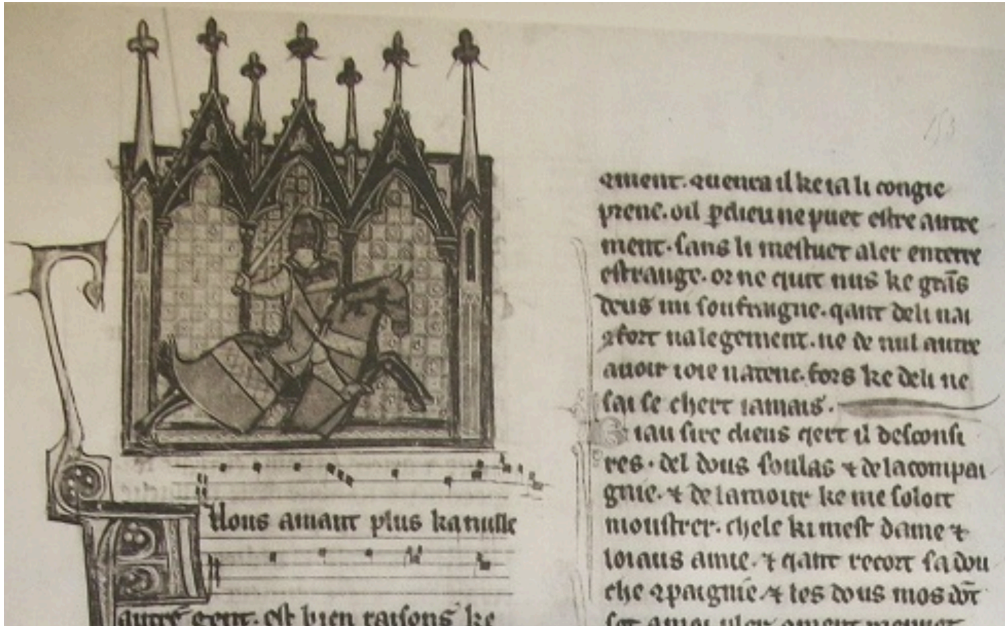 Uous amant plus ka nulle
autre gent. est bien raisons ke
ꝯment. ꝯuenra il ke ia li congie
prene. oil ꝑ dieu ne puet estre autre
ment. sans li mestuet aler en terre
estrange. or ne cuit nus ke grās
deus mi soufraigne. qant de li nai
ꝯfort nalegement. ne de nul autre
auoir ioie natenc. fors ke de li ne
sai se chert iamais.
Biau sire dieus qert il desconsi
res. del dous soulas ⁊ de la compai
gnie. ⁊ de lamour ke me soloit
moustrer. chele ki mest dame ⁊
loiaus amie. ⁊ qant recort sa dou
che ꝯpaignie ⁊ les dous mos dōt